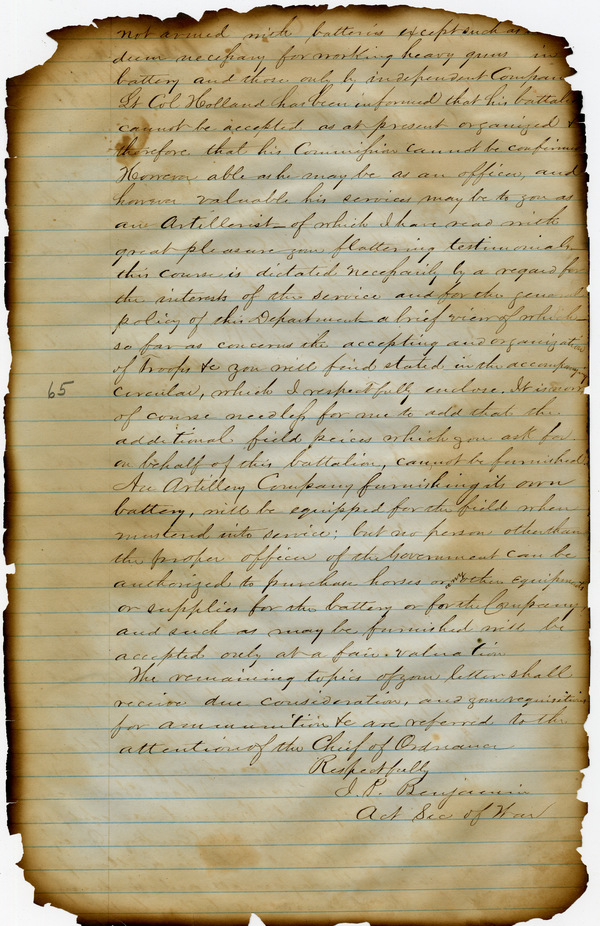 not armed with batteries except such as
deem necessary for working heavy guns in
battery and those only by independent Compan
Lt Col Holland has been informed that his battal
cannot be accepted as at present organized &
therefore that his Commission cannot be confirmed
However able as he may be as an officer, and
however valuable his services may be to you as
an Artillerist - of which I have read with
great pleasure your flattering testimonials
this course is dictated necessarily by a regard for
the interests of the service and for the general
policy of this Department - a brief view of which
so far as concerns the accepting and organization
of Troops &c you will find stated in the accompanying
circular, which I respectfully enclose. It is
of course needless for me to add that the
additional field peices which you ask for
on behalf of this battalion, cannot be furnished.
An Artillery Company furnishing its own
battery, will be equipped for the field when
mustered into service; but no person other than
the proper officer of the Government can be
authorized to purchase horses or any other equipments
or supplies for the battery or for the Company,
and such as may be furnished will be
accepted only at a fair valuation
The remaining topics of your letter shall
receive due consideration, and your requisitions
for ammunition &c are referred to the
attention of the Chief of Ordnance
Respectfully
J. P. Benjamin
Act Sec of War
65